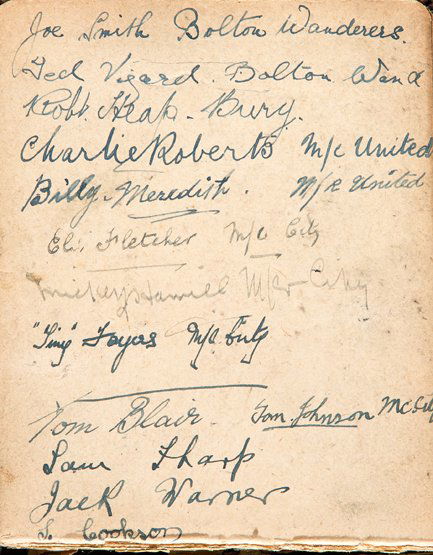 Joe Smith Bolton Wanderers.
Ted Vizard. Bolton Wand
Robt. Heap - Bury.
Charlie Roberts M/c United
Billy Meredith. M/c United
Eli Fletcher M/c City
Mickey Hamill M/cr City
"Tiny" Fayers M/c City
Tom Blair. Tom. Johnson Mc. City
Sam Sharp
Jack Warner
S. Cookson